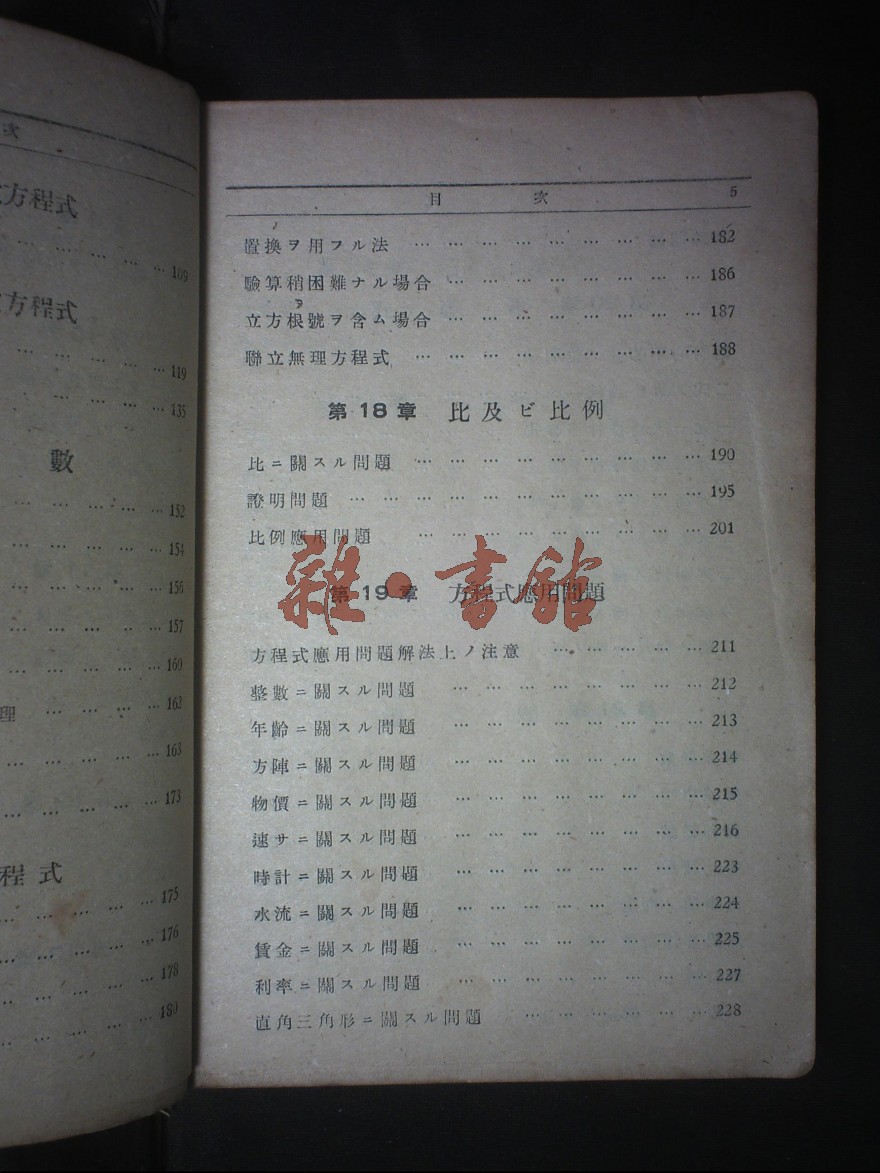 次
方程式
109
方程式
119
135
數
152
154
156
157
160
理 162
163
173
程式
175
176
178
180
目 次 5
置換ヲ用フル法 … … … … … … … … … 182
驗算稍困難ナル場合 … … … … … … … … 186
立方根號ヲ含ム場合 … … … … … … … … 187
聯立無理方程式 … … … … … … … … … 188
第18章 比及ビ比例
比ニ關スル問題 … … … … … … … … … 190
證明問題 … … … … … … … … … … … 195
比例應用問題 … … … … … … … … … 201
第19章 方程式應用問題
雜·書館
方程式應用問題解法上ノ注意 … … … … … 211
整數ニ關スル問題 … … … … … … … … 212
年齡ニ關スル問題 … … … … … … … … 213
方陣ニ關スル問題 … … … … … … … … 214
物價ニ關スル問題 … … … … … … … … 215
速サニ關スル問題 … … … … … … … … 216
時計ニ關スル問題 … … … … … … … … 223
水流ニ關スル問題 … … … … … … … … 224
賃金ニ關スル問題 … … … … … … … … 225
利率ニ關スル問題 … … … … … … … … 227
直角三角形ニ關スル問題 … … … … … … 228